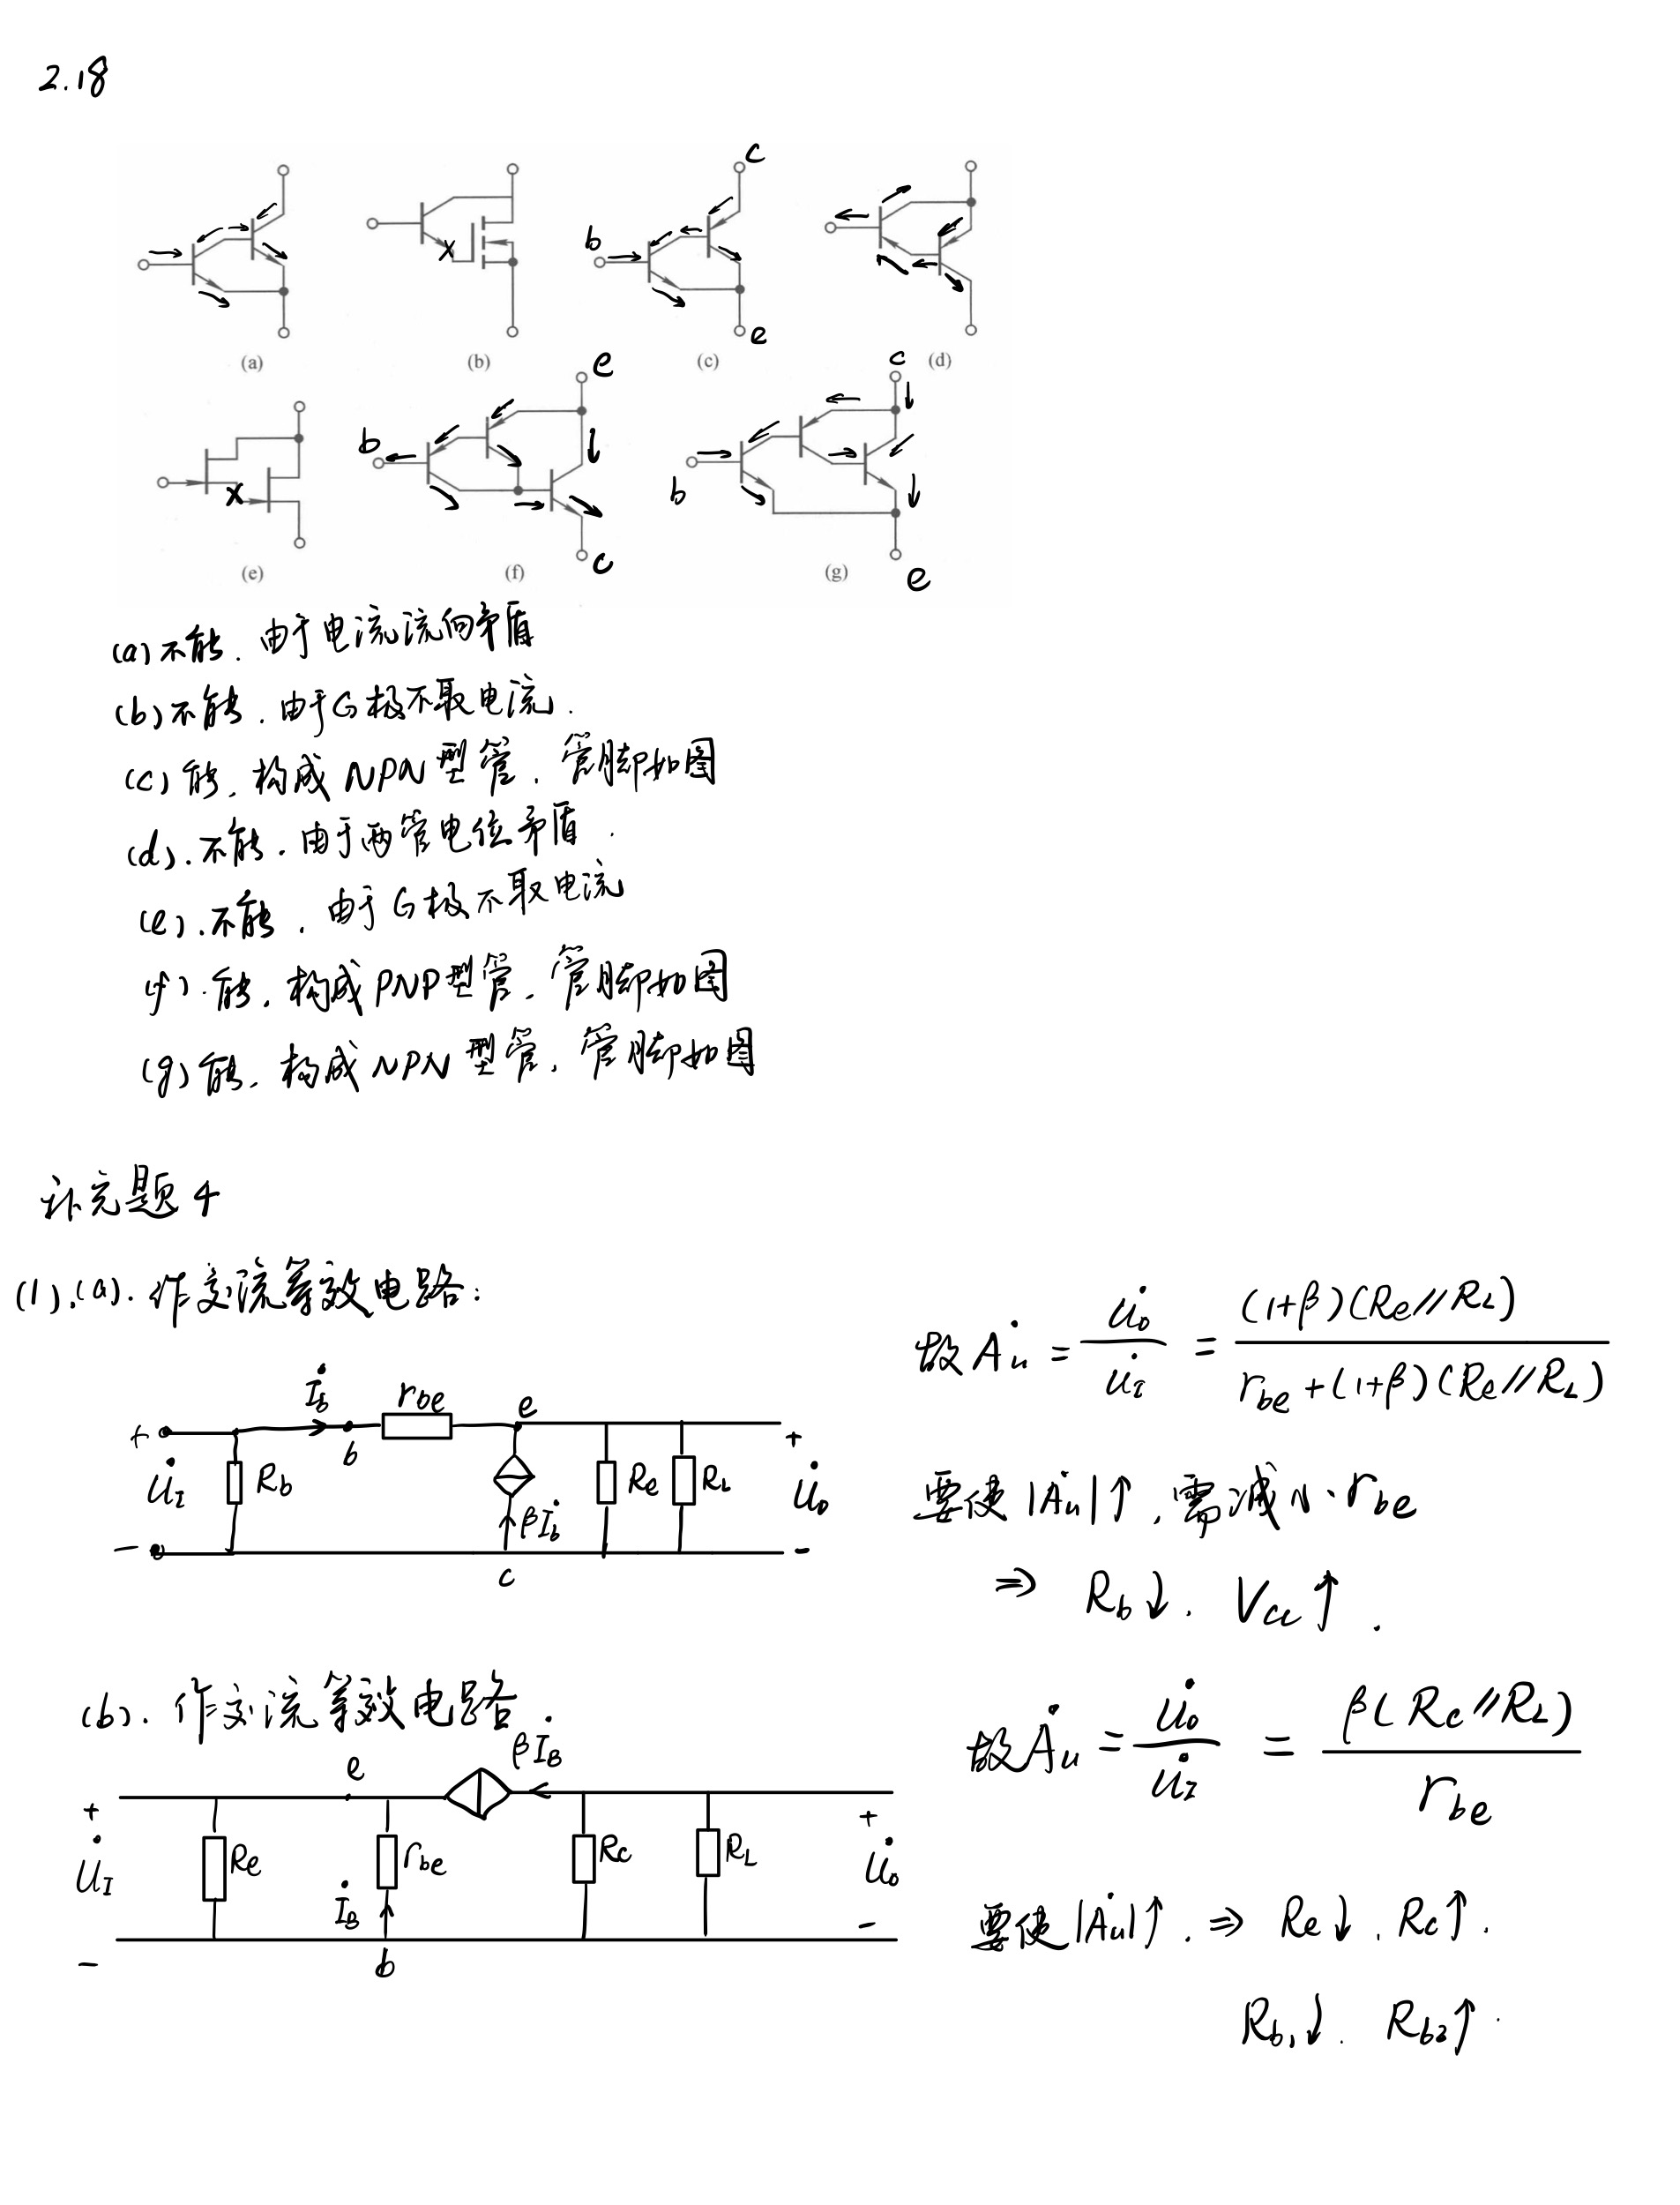 2.18
c
b
e
(a) (b) (c) (d)
e
c
b
b
(e) (f) (g)
c
e
(a) 不能. 由于电流流向矛盾
(b) 不能. 由于G极不取电流.
(c) 能. 构成NPN型管. 管脚如图
(d). 不能. 由于两管电位矛盾.
(e). 不能. 由于G极不取电流
(f). 能. 构成PNP型管. 管脚如图
(g) 能. 构成NPN型管. 管脚如图
补充题4
(1).(a). 作交流等效电路:
İb rbe e
+ b +
U̇I Rb βİb Re RL U̇o
- c -
故Ȧu = U̇o/U̇i = (1+β)(Re//RL) / rbe+(1+β)(Re//RL)
要使|Ȧu|↑, 需减小rbe
⇒ Rb↓. Vcc↑.
(b). 作交流等效电路
e βİB
+ +
U̇I Re rbe Rc RL U̇o
İB
- b -
故Ȧu = U̇o/U̇I = β(Rc//RL) / rbe
要使|Ȧu|↑. ⇒ Re↓. Rc↑.
Rb1↓. Rb2↑.